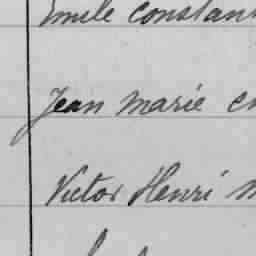 Emile constant
Jean Marie
Victor Henri